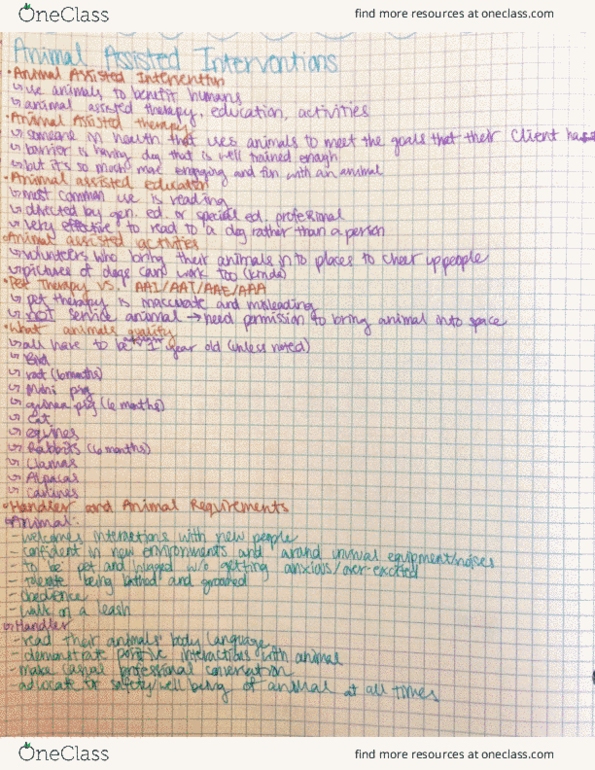 OneClass
find more resources at oneclass.com
Animal Assisted Interventions
• Animal Assisted Intervention
↳ use animals to benefit humans
↳ animal assisted therapy, education, activities
• Animal Assisted therapy
↳ someone in health that uses animals to meet the goals that their client has
↳ barrier is having dog that is well trained enough
↳ but it's so much more engaging and fun with an animal
• Animal assisted education
↳ most common use is reading
↳ directed by gen. ed. or special ed. profesional
↳ very effective to read to a dog rather than a person
• Animal assisted activities
↳ volunteers who bring their animals into places to cheer up people
↳ pictures of dogs can work too (kinda)
• Pet Therapy vs. AAI/AAT/AAE/AAA
↳ pet therapy is inaccurate and misleading
↳ NOT service animal → need permission to bring animal into space
• What animals qualify
↳ all have to be 1 year old (unless noted)
↳ Bird
↳ rat (6 months)
↳ Mini pig
↳ guinea pig (6 months)
↳ Cat
↳ equines
↳ Rabbits (6 months)
↳ Llamas
↳ Alpacas
↳ Canines
• Handler and Animal Requirements
↳ Animal:
- welcomes interactions with new people
- confident in new environments and around unusual equipment/noises
- to be pet and hugged w/o getting anxious/over-excited
- tolerate being bathed and groomed
- obedience
- walk on a leash
↳ Handler
- read their animals' body language
- demonstrate positive interactions with animal
- make casual professional conversation
- advocate for safety/well being of animal at all times
OneClass
find more resources at oneclass.com